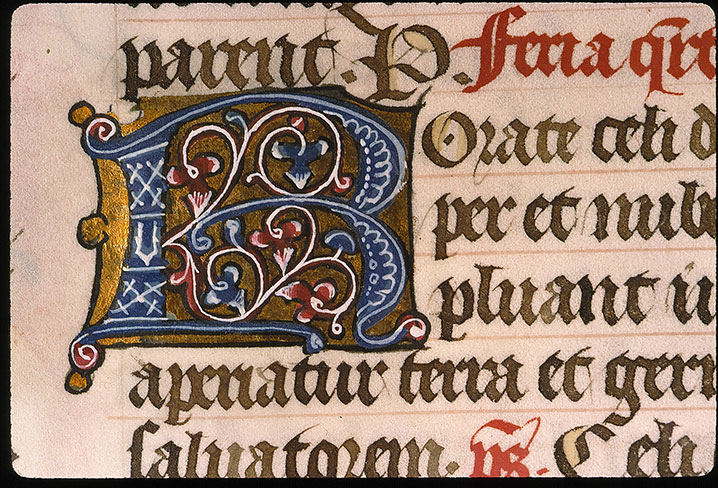 parent. P. Feria qrt
ROrate celi d
per et nube
pluant iu
aperiatur terra et germ
saluatorem. ps. Celi